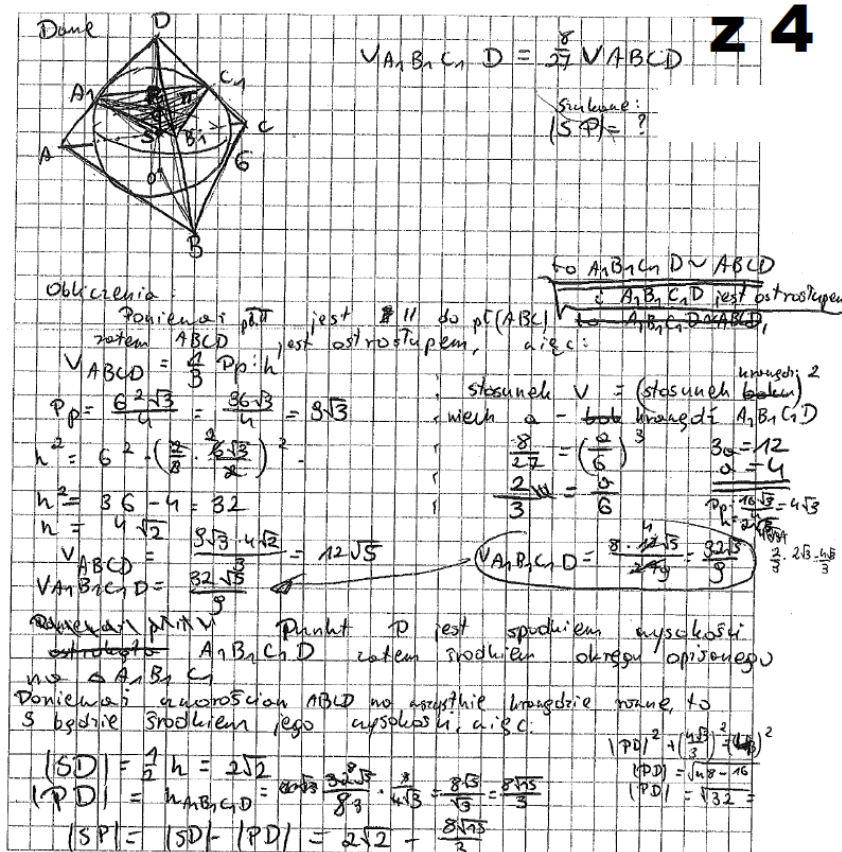 z 4
Dane
V A₁B₁C₁ D = 8/27 V ABCD
Szukane:
|SP| = ?
D
A₁
C₁
S
B₁
A
C
6
O
B
to A₁B₁C₁ D ~ ABCD
i A₁B₁C₁D jest ostrosłupem
Obliczenia:
Ponieważ pł. π jest || do pł(ABC)
zatem ABCD jest ostrosłupem, więc:
V ABCD = 1/3 Pp · h
Pp = 6²√3/4 = 36√3/4 = 9√3
h² = 6² - (2/3 · 6√3/2)²
h² = 36 - 4 = 32
h = 4√2
V ABCD = 9√3 · 4√2/3 = 12√5
V A₁B₁C₁D = 32√5/9
stosunek V = (stosunek krawędzi)²
niech a - krawędź A₁B₁C₁D
8/27 = (a/6)³
2/3 = a/6
3a = 12
a = 4
Pp = 16√3/4 = 4√3
V A₁B₁C₁D = 8 · 12√5/27 = 32√5/9
2/3 · 2√3 = 4√3/3
Punkt P jest spodkiem wysokości
A₁B₁C₁D zatem środkiem okręgu opisanego
na △ A₁B₁C₁
Ponieważ czworościan ABCD ma wszystkie krawędzie równe, to
S będzie środkiem jego wysokości, więc:
|SD| = 1/2 h = 2√2
|PD| = h A₁B₁C₁D = 32√5/9 · 3/4√3 = 8√5/√3 = 8√15/3
|SP| = |SD| - |PD| = 2√2 - 8√15/3
|PD|² + (4√3/3)² = (4√3)²
|PD| = √48 - 16
|PD| = √32 =